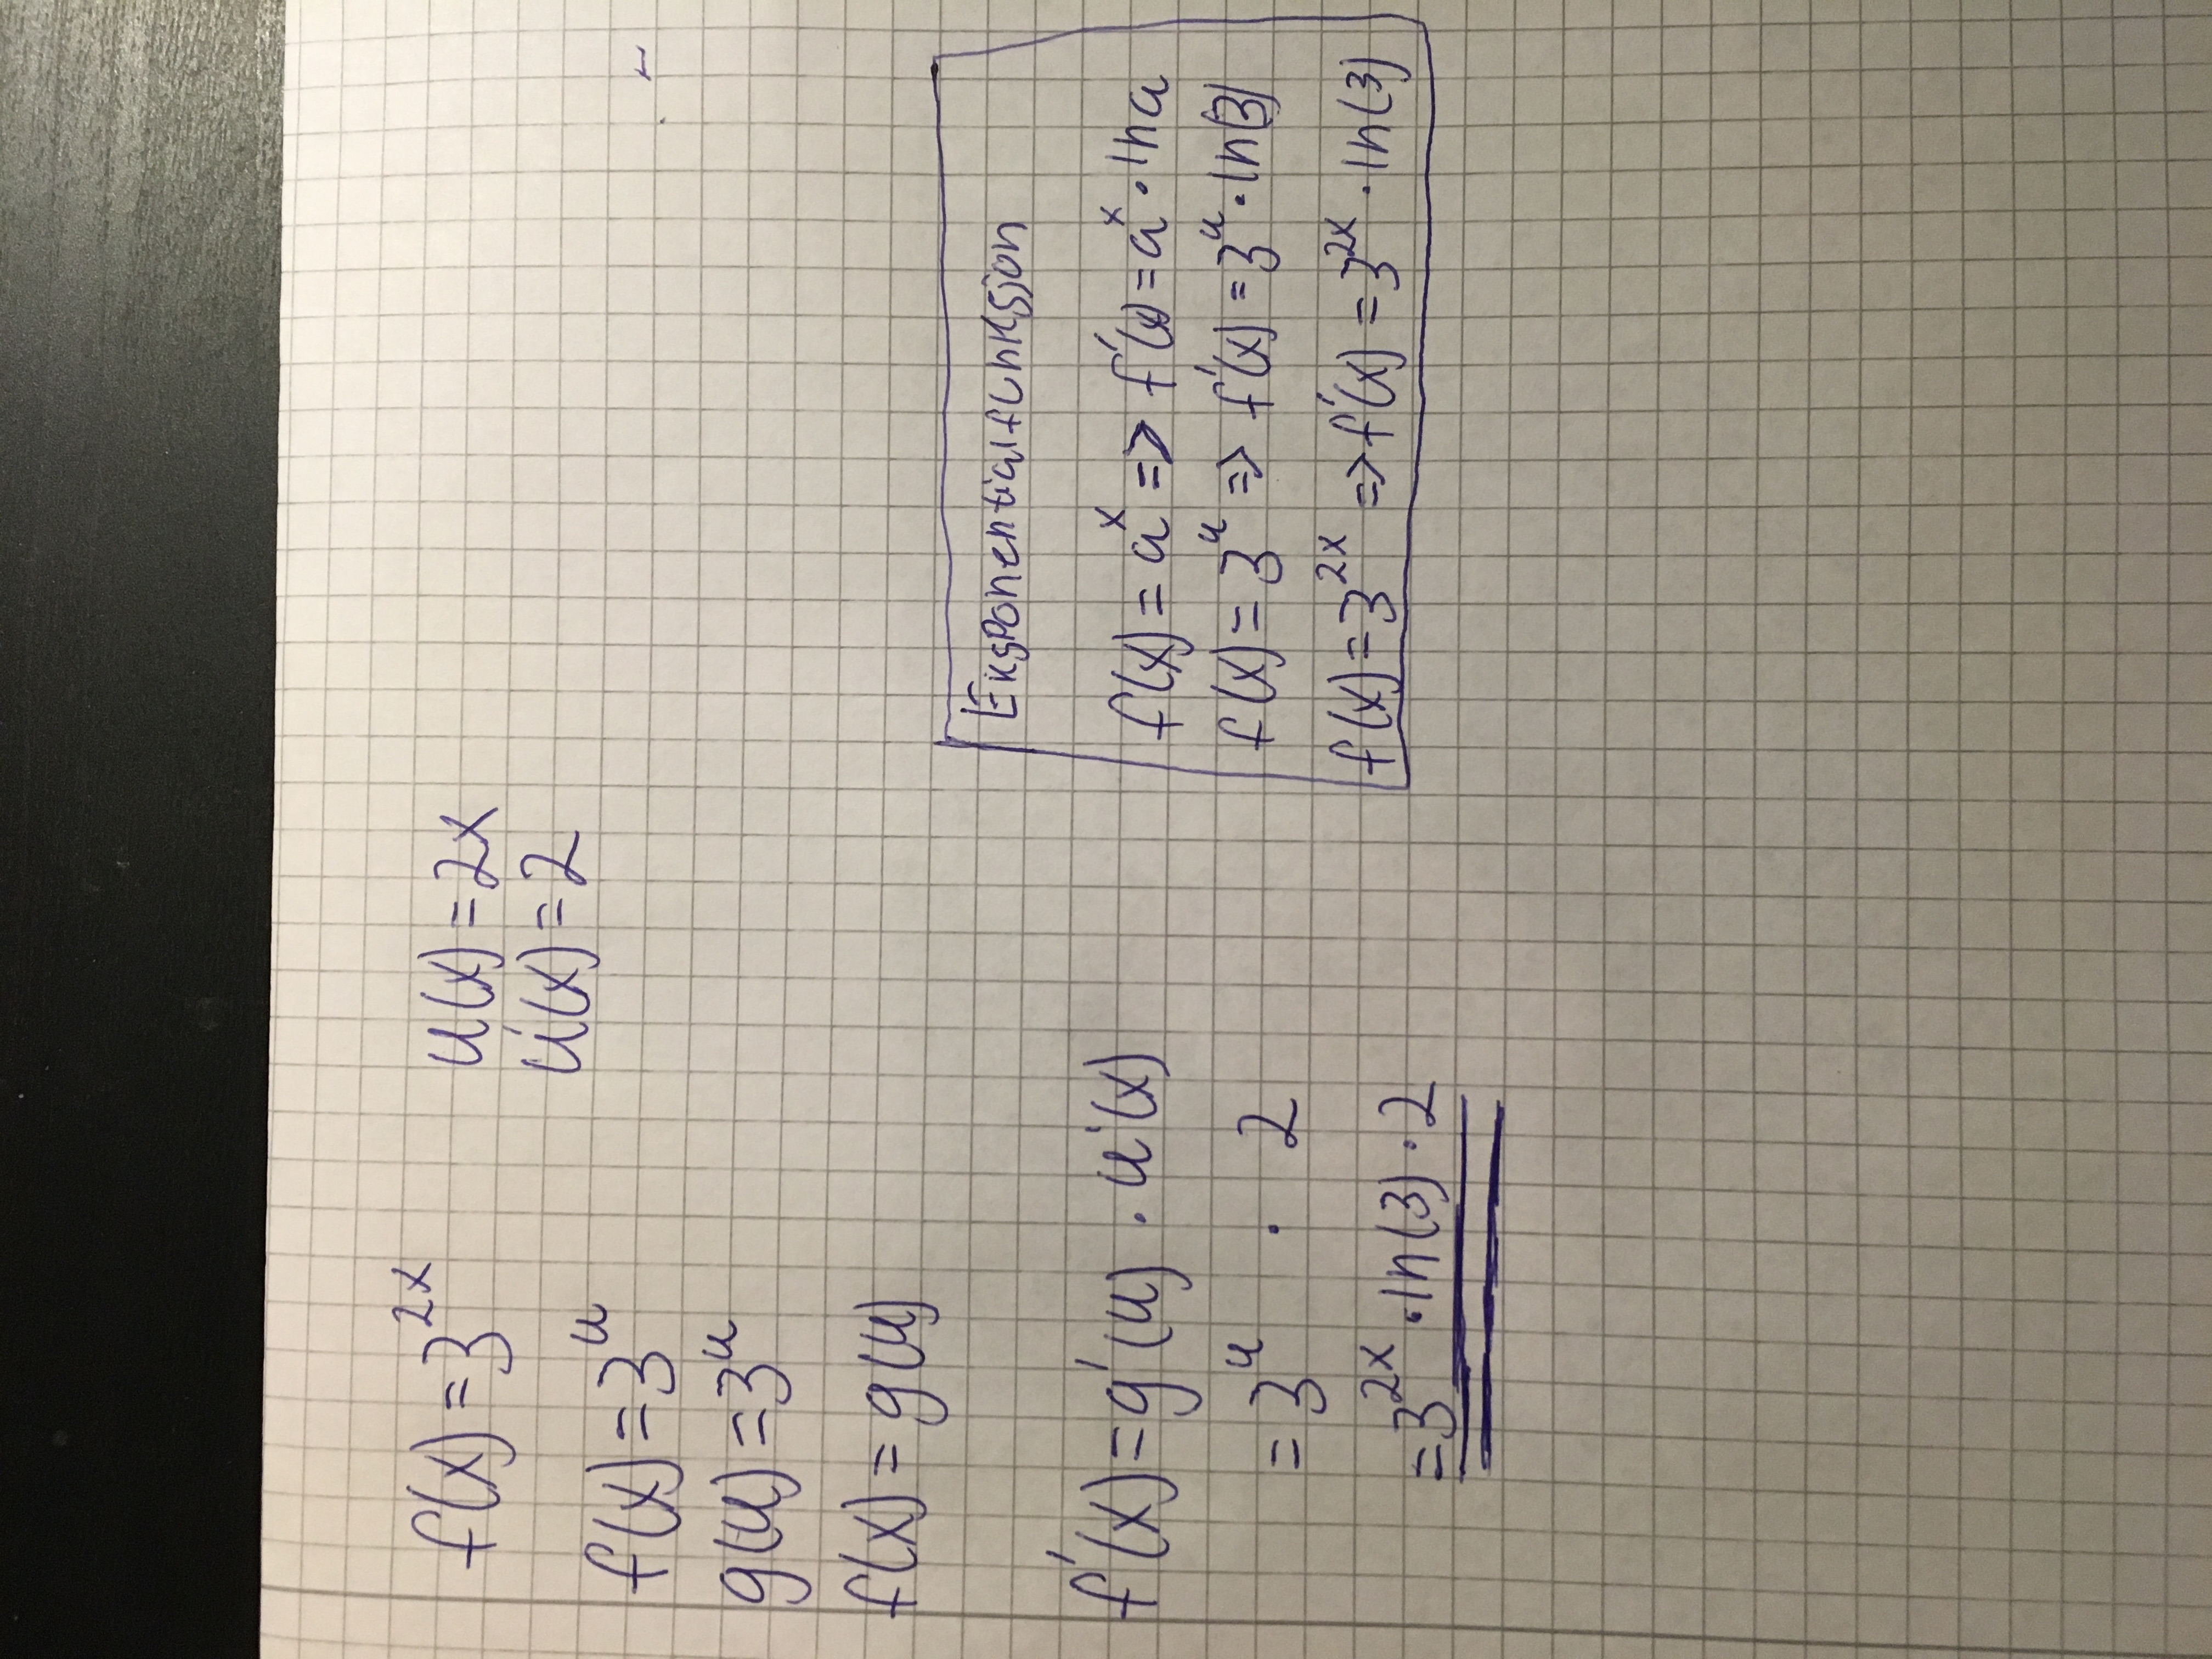 f(x) = 3^2x
u(x) = 2x
u'(x) = 2
f(x) = 3^u
g(u) = 3^u
f(x) = g(u)
f'(x) = g'(u) · u'(x)
= 3^u · 2
= 3^2x · ln(3) · 2
Eksponentialfunksjon
f(x) = a^x => f'(x) = a^x · ln a
f(x) = 3^u => f'(x) = 3^u · ln(3)
f(x) = 3^2x => f'(x) = 3^2x · ln(3)